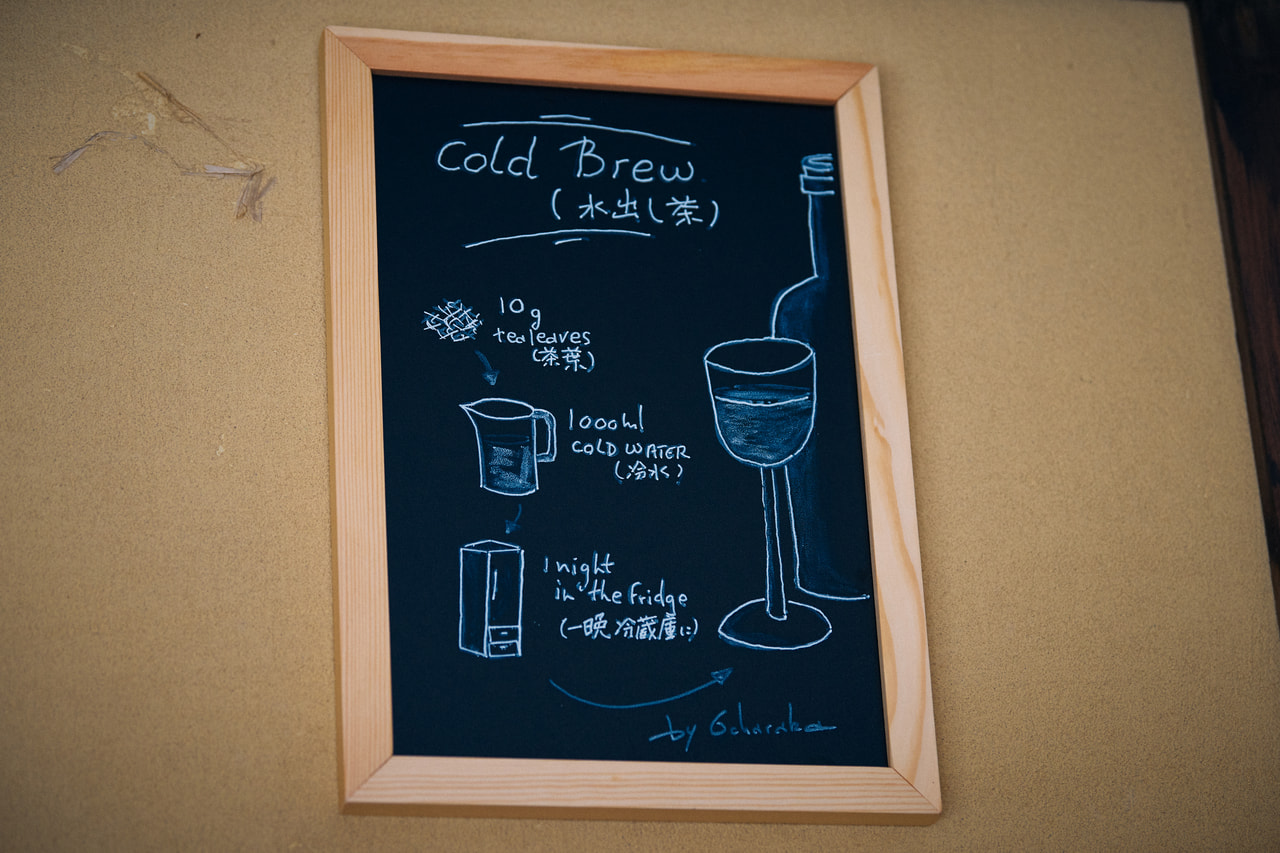 Cold Brew
(水出し茶)
10g
tea leaves
(茶葉)
1000ml
COLD WATER
(冷水)
1 night
in the Fridge
(一晩 冷蔵庫に)
by